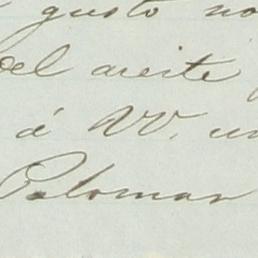 gusto no
del aceite
á VV. un
Palomar